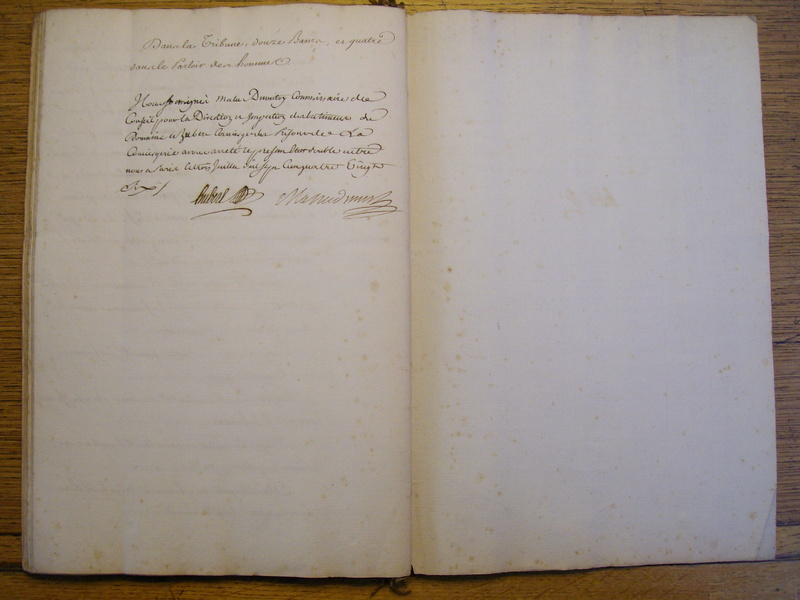 Dans la Tribune, douze Bancs, et quatre
dans le Parloir des hommes
Nous soussignés Commissaire de
Conseil pour la Direction et Inspection des batimens du
Domaine et hubert Concierge des Prisons de La
Conciergerie avons areté le present Etat double entre
nous a Paris le trois Juillet Mil Sept Cent quatre Vingt
hubert